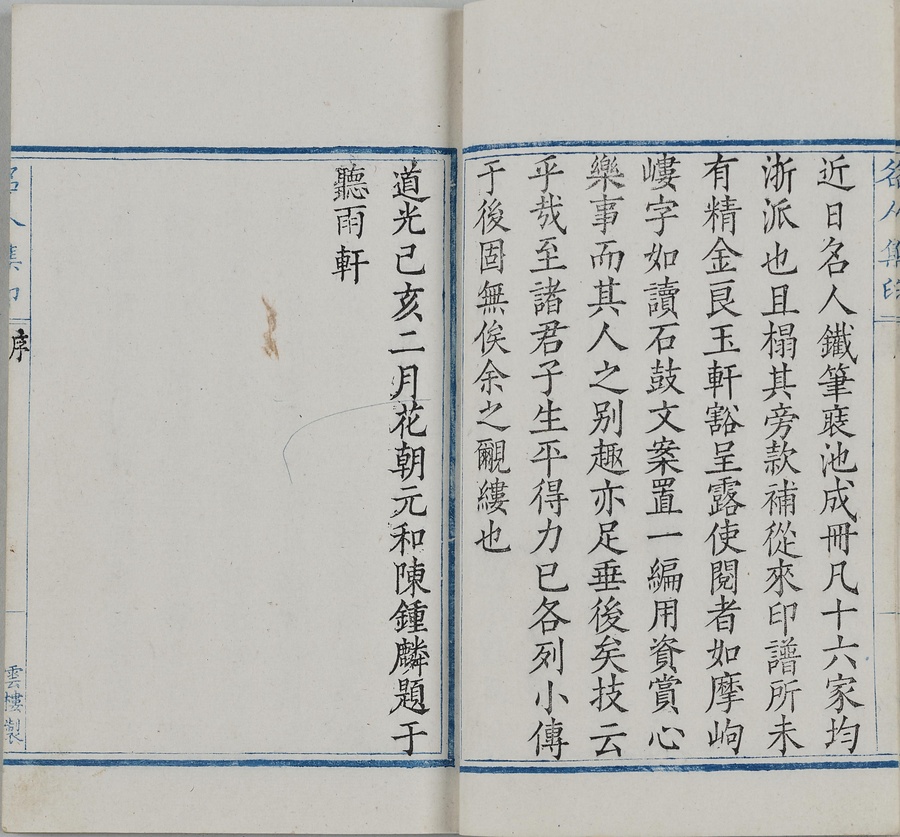 名人集印
近日名人鐵筆裒池成冊凡十六家均
浙派也且榻其旁款補從來印譜所未
有精金良玉軒豁呈露使閱者如摩岣
嶁字如讀石鼓文案置一編用資賞心
樂事而其人之别趣亦足垂後矣技云
乎哉至諸君子生平得力已各列小傳
于後固無俟余之覼縷也
道光己亥二月花朝元和陳鍾麟題于
聽雨軒
名人集印
序
雲樓製